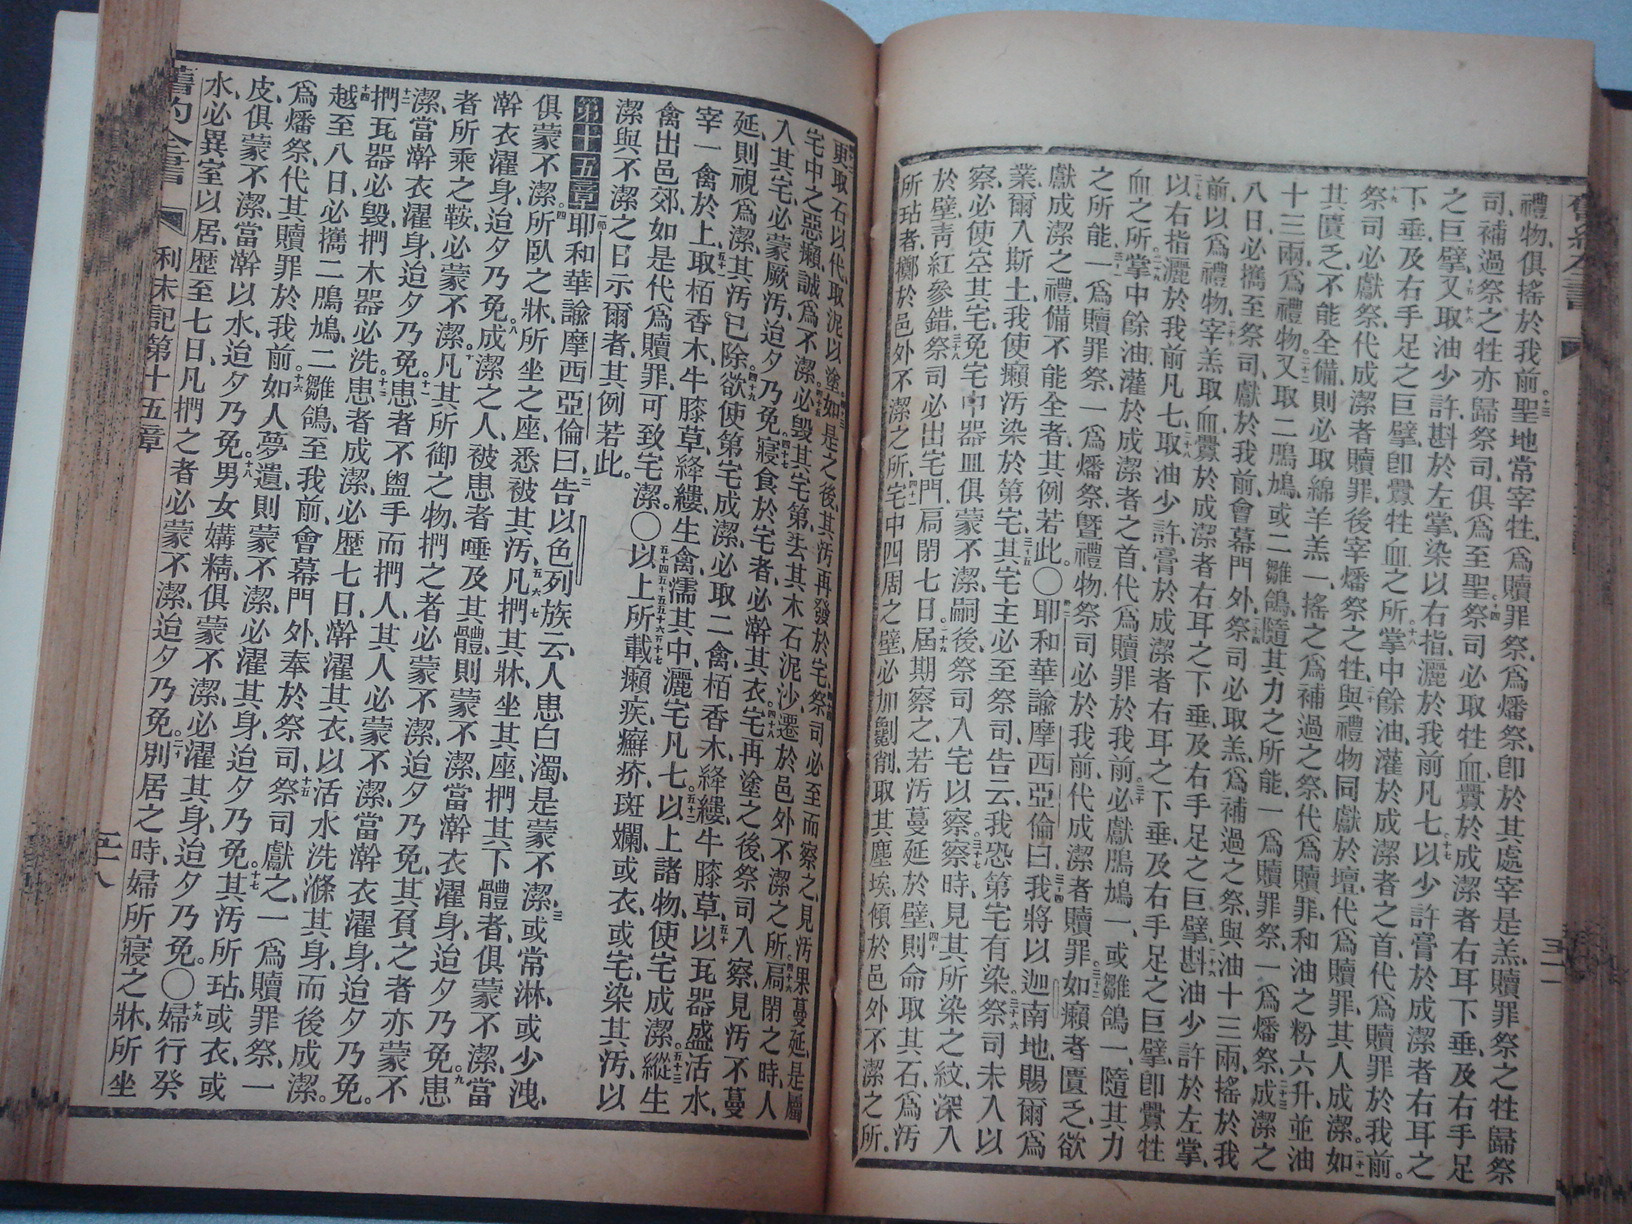 禮物、俱搖於我前。十三聖地常宰牲、爲贖罪祭、爲燔祭、卽於其處宰是羔、贖罪祭之牲歸祭
司、補過祭之牲亦歸祭司、俱爲至聖。十四祭司必取牲血、釁於成潔者右耳下垂、及右手足
之巨擘、十五又取油少許、斟於左掌、十六染以右指、灑於我前凡七、十七以少許膏於成潔者右耳之
下垂、及右手足之巨擘、卽釁牲血之所、十八掌中餘油、灌於成潔者之首、代爲贖罪於我前。
十九祭司必獻祭、代成潔者贖罪、後宰燔祭之牲、二十與禮物同獻於壇、代爲贖罪、其人成潔。二十一如
其匱乏、不能全備、則必取綿羊羔一、搖之爲補過之祭、代爲贖罪、和油之粉六升、並油
十三兩、爲禮物。二十二又取二鳲鳩、或二雛鴿、隨其力之所能、一爲贖罪祭、一爲燔祭。二十三成潔之
八日、必攜至祭司、獻於我前、會幕門外、二十四祭司必取羔、爲補過之祭、與油十三兩、搖於我
前、以爲禮物、二十五宰羔取血、釁於成潔者右耳之下垂、及右手足之巨擘、二十六斟油少許於左掌、
二十七以右指灑於我前凡七、二十八取油少許、膏於成潔者右耳之下垂、及右手足之巨擘、卽釁牲
血之所、二十九掌中餘油、灌於成潔者之首、代爲贖罪於我前。三十必獻鳲鳩一、或雛鴿一、隨其力
之所能、三十一一爲贖罪祭、一爲燔祭、曁禮物、祭司必於我前、代成潔者贖罪。三十二如癩者匱乏、欲
獻成潔之禮、備不能全者、其例若此。〇三十三耶和華諭摩西亞倫曰、三十四我將以迦南地、賜爾爲
業、爾入斯土、我使癩汚染於第宅、三十五其宅主必至祭司告云、我恐第宅有染、三十六祭司未入以
察、必使空其宅、免宅中器皿、俱蒙不潔、嗣後祭司入宅以察、三十七察時、見其所染之紋、深入
於壁、靑紅參錯、三十八祭司必出宅門、扃閉七日、三十九屆期察之、若汚蔓延於壁、四十則命取其石爲汚
所玷者、擲於邑外不潔之所、四十一宅中四周之壁、必加劖削、取其塵埃、傾於邑外不潔之所、
四十二更取石以代、取泥以塗、四十三如是之後、其汚再發於宅、四十四祭司必至而察之、見汚果蔓延、是屬
宅中之惡癩、誠爲不潔、四十五必毀其宅第、去其木石泥沙、遷於邑外不潔之所。四十六扃閉之時、人
入其宅、必蒙厥汚、迨夕乃免、四十七寢食於宅者、必澣其衣。四十八宅再塗之後、祭司入察、見汚不蔓
延、則視爲潔、其汚已除、四十九欲使第宅成潔、必取二禽、栢香木、絳縷、牛膝草、五十以瓦器盛活水、
宰一禽於上、五十一取栢香木、牛膝草、絳縷、生禽、濡其中、灑宅凡七。五十二以上諸物、使宅成潔、五十三縱生
禽出邑郊、如是代爲贖罪、可致宅潔。〇五十四五十五五十六五十七以上所載癩疾、癬疥、斑斕、或衣、或宅、染其汚、以
潔與不潔之日、示爾者、其例若此。
第十五章 一節耶和華諭摩西亞倫曰、二告以色列族云、人患白濁、是蒙不潔、三或常淋、或少洩、
俱蒙不潔、四所臥之牀、所坐之座、悉被其汚、五六七凡捫其牀、坐其座、捫其下體者、俱蒙不潔、當
澣衣濯身、迨夕乃免。八成潔之人、被患者唾及其體、則蒙不潔、當澣衣濯身、迨夕乃免。九患
者所乘之鞍、必蒙不潔、十凡其所御之物、捫之者必蒙不潔、迨夕乃免、其負之者、亦蒙不
潔、當澣衣濯身、迨夕乃免。十一患者不盥手而捫人、其人必蒙不潔、當澣衣濯身、迨夕乃免。
十二捫瓦器必毀、捫木器必洗、十三患者成潔、必歷七日、澣濯其衣、以活水洗滌其身、而後成潔。
十四越至八日、必攜二鳲鳩、二雛鴿、至我前、會幕門外、奉於祭司、十五祭司獻之、一爲贖罪祭、一
爲燔祭、代其贖罪於我前。十六如人夢遺、則蒙不潔、必濯其身、迨夕乃免。十七其汚所玷、或衣、或
皮、俱蒙不潔、當澣以水、迨夕乃免。十八男女媾精、俱蒙不潔、必濯其身、迨夕乃免。〇十九婦行癸
水、必異室以居、歷至七日、凡捫之者、必蒙不潔、迨夕乃免。二十別居之時、婦所寢之牀、所坐
舊約全書 利未記第十五章